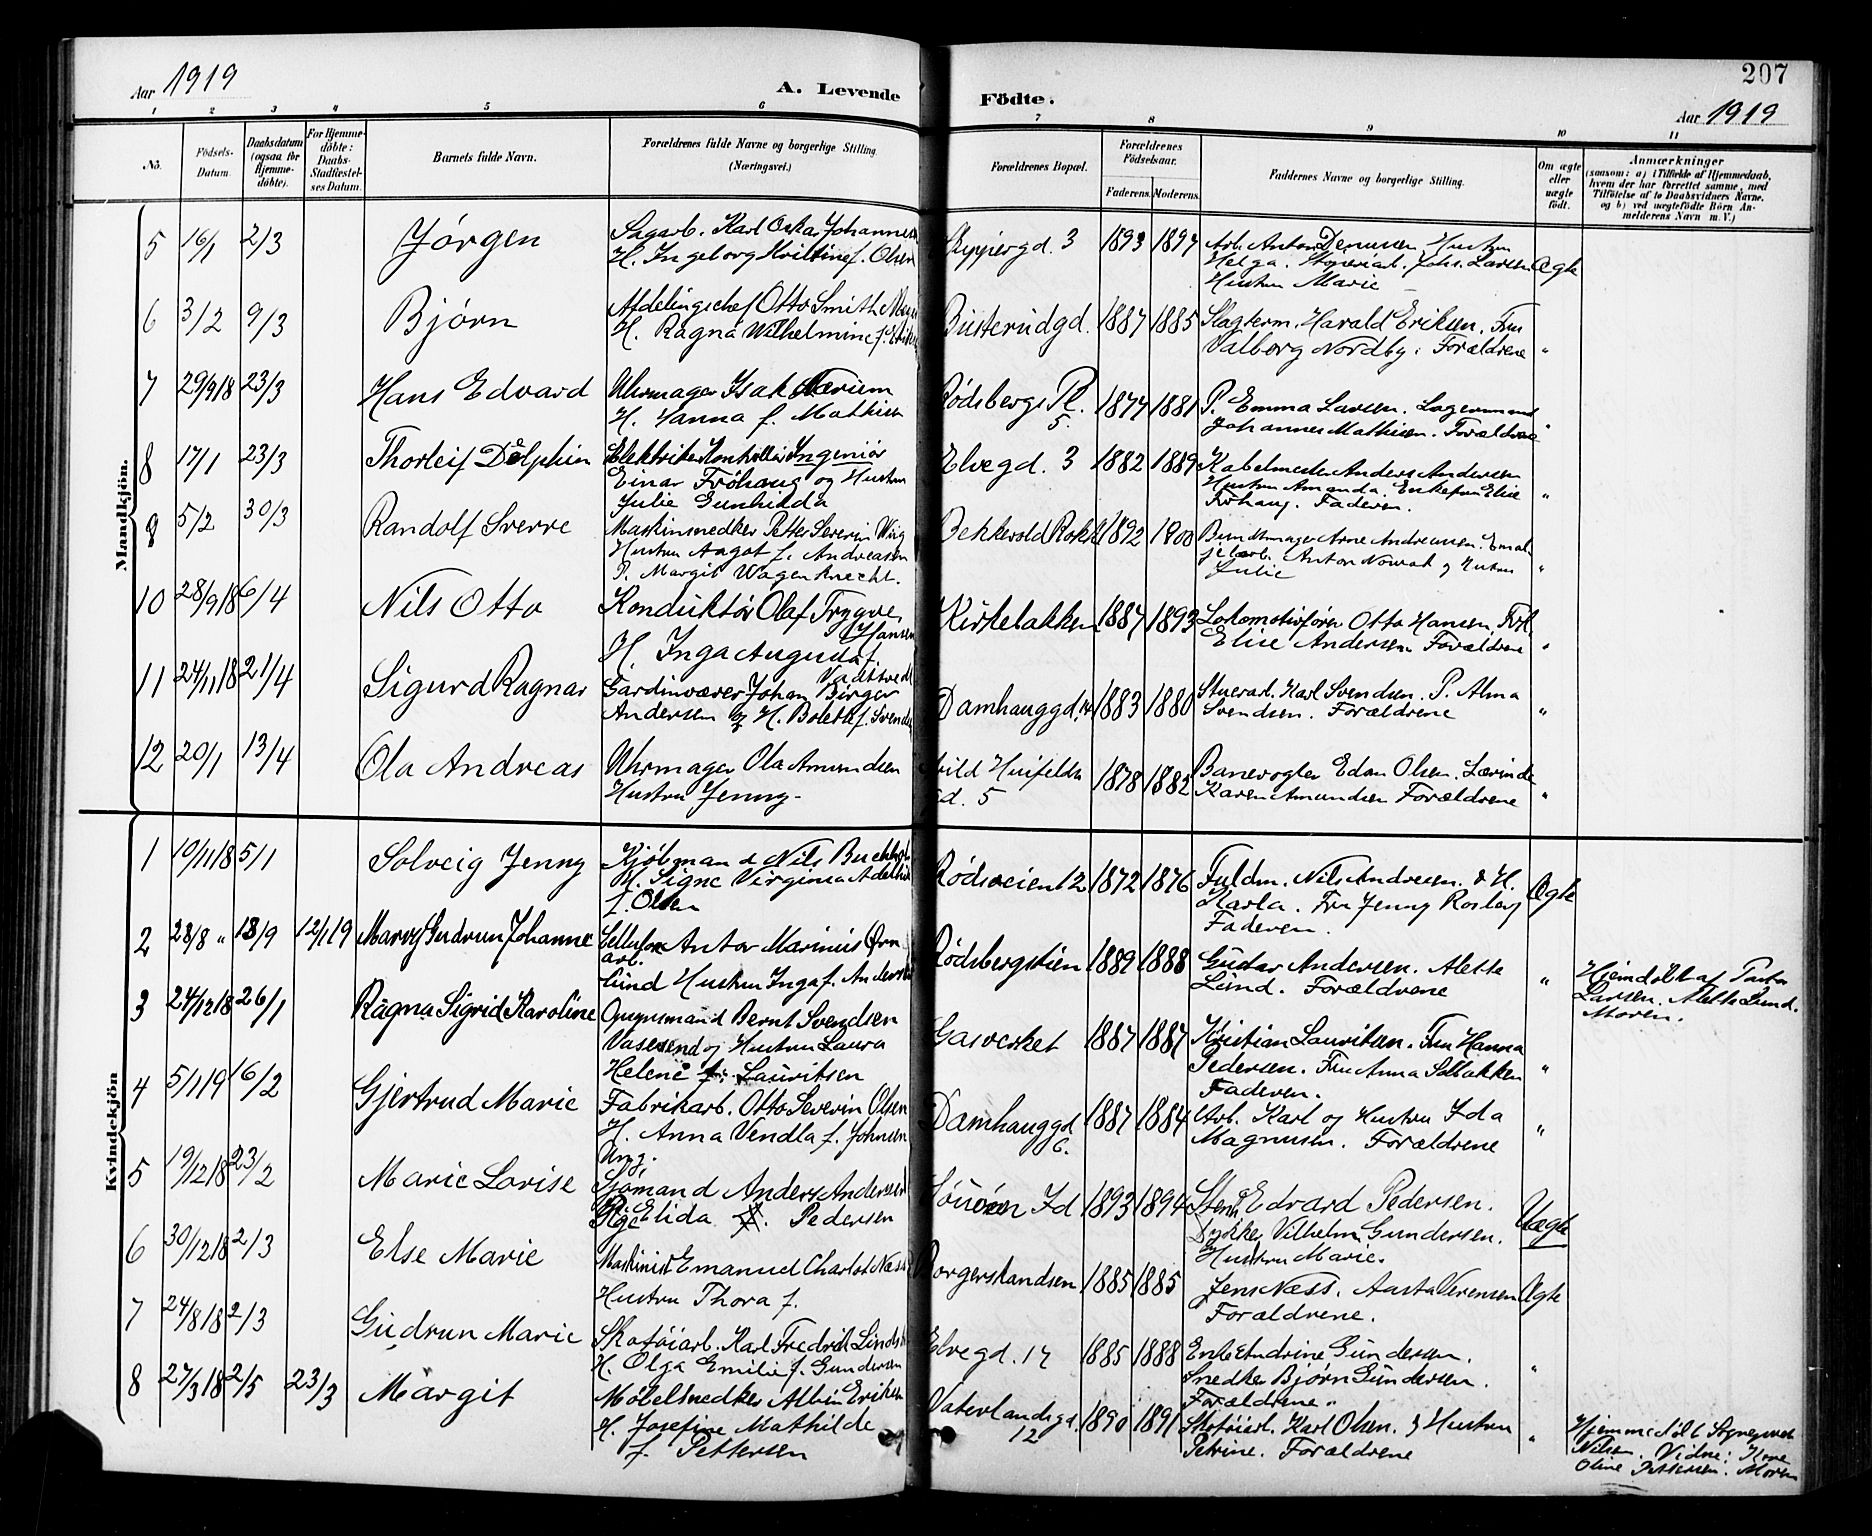 Aar 1919
A. Levende Födte.
207
Aar 1919
1 2 3 4 5 6 7 8 9 10 11
No. Födsels-Datum. Daabsdatum (ogsaa for Hjemme-döbte). For Hjemme-döbte: Daabs-Stadfæstel-ses Datum. Barnets fulde Navn. Forældrenes fulde Navne og borgerlige Stilling. (Næringsvei.) Forældrenes Bopæl. Forældrenes Födselsaar. Faderens. Moderens. Faddernes Navne og borgerlige Stilling. Om ægte eller uægte födt. Anmærkninger (saasom: a) i Tilfælde af Hjemmedaab, hvem der har forrettet samme, med Tilföielse af to Daabsvidners Navne. og b) ved uægtefödte Börn An-melderens Navn m. V.)
Mandkjön.
5 16/1 2/3 Jörgen Sagarb. Karl Oskar Johannes
H. Ingeborg f. Olsen
Skippergd. 3 1893 1897 Arb. Anton Hustru
Helga. Johs. Larsen
Hustru Marie
Ægte
6 3/2 9/3 Bjørn Afdelingschef Otto Smith
H. Ragna Wilhelmine f.
Busterudgd. 1887 1885 Slagterm. Harald Eriksen. Fru
Valborg Nordby. Forældrene "
7 29/9 18 23/3 Hans Edvard Uhrmager Isak
H. Hanna f. Mathisen
Rödsbergs Pl. 5. 1877 1881 P. Emma Larsen. Lagermand
Johannes Mathisen. Forældrene "
8 17/1 23/3 Thorleif Delphin Elektriker Kontrollør Ingeniør
Einar Fröhaug og Hustru
Julie Gunhilda
Elvegd. 3 1882 1889 Kabelmester Anders Andersen
Hustru Amanda. Enkefru Elise
Fröhaug. Faderen. "
9 5/2 30/3 Randolf Sverre Maskinsnedker Petter Severin Wiig
Hustru Aagot f. Andreasen
P. Margit Wagenknecht.
Bekkevold Rokke 1892 1900 Bundtmager Arne Andreassen.
Anton Nowak og Hustru
Julie "
10 28/9 18 6/4 Nils Otto Konduktør Olaf Trygve
Hansen
H. Inga Augusta f.
Kirkebakken 1887 1893 Lokomotivfører Otto Hansen. Frk.
Elise Andersen Forældrene "
11 24/11 18 21/4 Sigurd Ragnar Gardinvæver Johan Birger
Andersen og H. Bolette f. Svendsen
Damhauggd. 1883 1880 Stuerarb. Karl Svendsen. P. Alma
Svendsen. Forældrene "
12 20/1 13/4 Ola Andreas Uhrmager Ola Amundsen
Hustru Jenny.
Arild Huitfeldts
gd. 5 1878 1882 Banevogter Edan Olsen.
Karen Amundsen Forældrene "
Kvindekjön
1 10/11 18 5/1 Solveig Jenny Kjøbmand Nils
H. Signe Virginia
f. Olsen
Rödsveien 12 1872 1876 Fuldm. Nils Andresen. & H.
Karla. Fru Jenny Rosberg
Faderen. Ægte
2 28/8 " 18/9 12/1 19 Marry Gudrun Johanne Cellulose arb. Anton Marinius Ørn
Lund Hustru Inga f. Andersen
Rödsbergstien 1889 1888 Gustav Andersen. Alette
Lund. Forældrene " Hjemdöbt af Pastor
Larsen. Alette Lund.
Moren.
3 24/12 18 26/1 Ragna Sigrid Karoline Opsynsmand Bernt Svendsen
Vasesend og Hustru Laura
Helene f. Lauritsen
Gasverket 1887 1887 Kristian Lauritsen. Fru Hanna
Pedersen. Fru Anna Solbakken
Faderen. "
4 5/1 19 16/2 Gjertrud Marie Fabrikarb. Otto Severin Olsen
H. Anna Vendla f. Johnsen
Damhauggd 6. 1887 1884 Arb. Karl og Hustru Ida
Magnusen. Forældrene "
5 19/12 18 23/2 Marie Lovise Ung.
Sjømand Anders Andersen
Pige Elida Pedersen
1893 1894 Sten Edvard Pedersen.
Vilhelm Gundersen.
Hustru Marie. Uægte
6 30/12 18 2/3 Else Marie Maskinist Emanuel Charlot Næss
Hustru Thora f.
Borgerskandsen 1885 1885 Jens Næss. Aasta Sørensen
Forældrene. Ægte
7 24/8 18 2/3 Gudrun Marie Skotöiarb. Karl Fredrik
H. Olga Emilie f. Gundersen
Elvegd. 17 1885 1888 Enke Andrine Gundersen.
Snedker Bjørn Gundersen.
Forældrene. "
8 27/3 18 2/5 23/3 Margit Møbelsnedker Albin Eriksen
H. Josefine Mathilde
f. Pettersen
Vaterlandsgd. 12 1890 1891 Skotöiarb. Karl Olsen. & Hustru
Petrine. Forældrene " Hjemmedöbt
Nilsen. Vidne:
Oline Pettersen. Moren